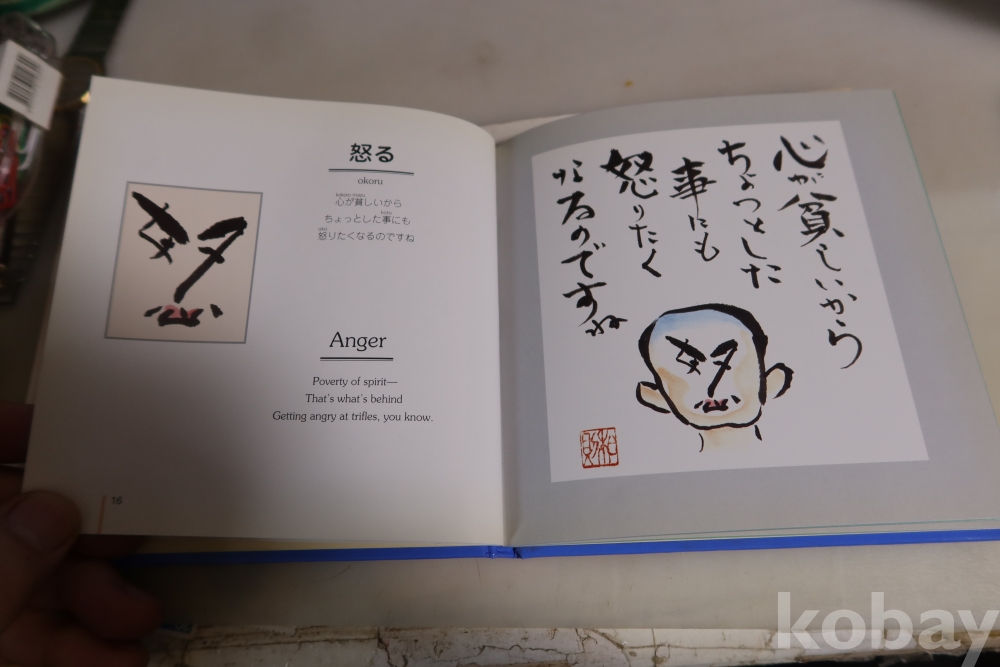 怒る
okoru
心が貧しいから
ちょっとした事にも
怒りたくなるのですね
Anger
Poverty of spirit—
That's what's behind
Getting angry at trifles, you know.
16
心が貧しいから
ちょっとした
事にも
怒りたく
なるのですね
kobay